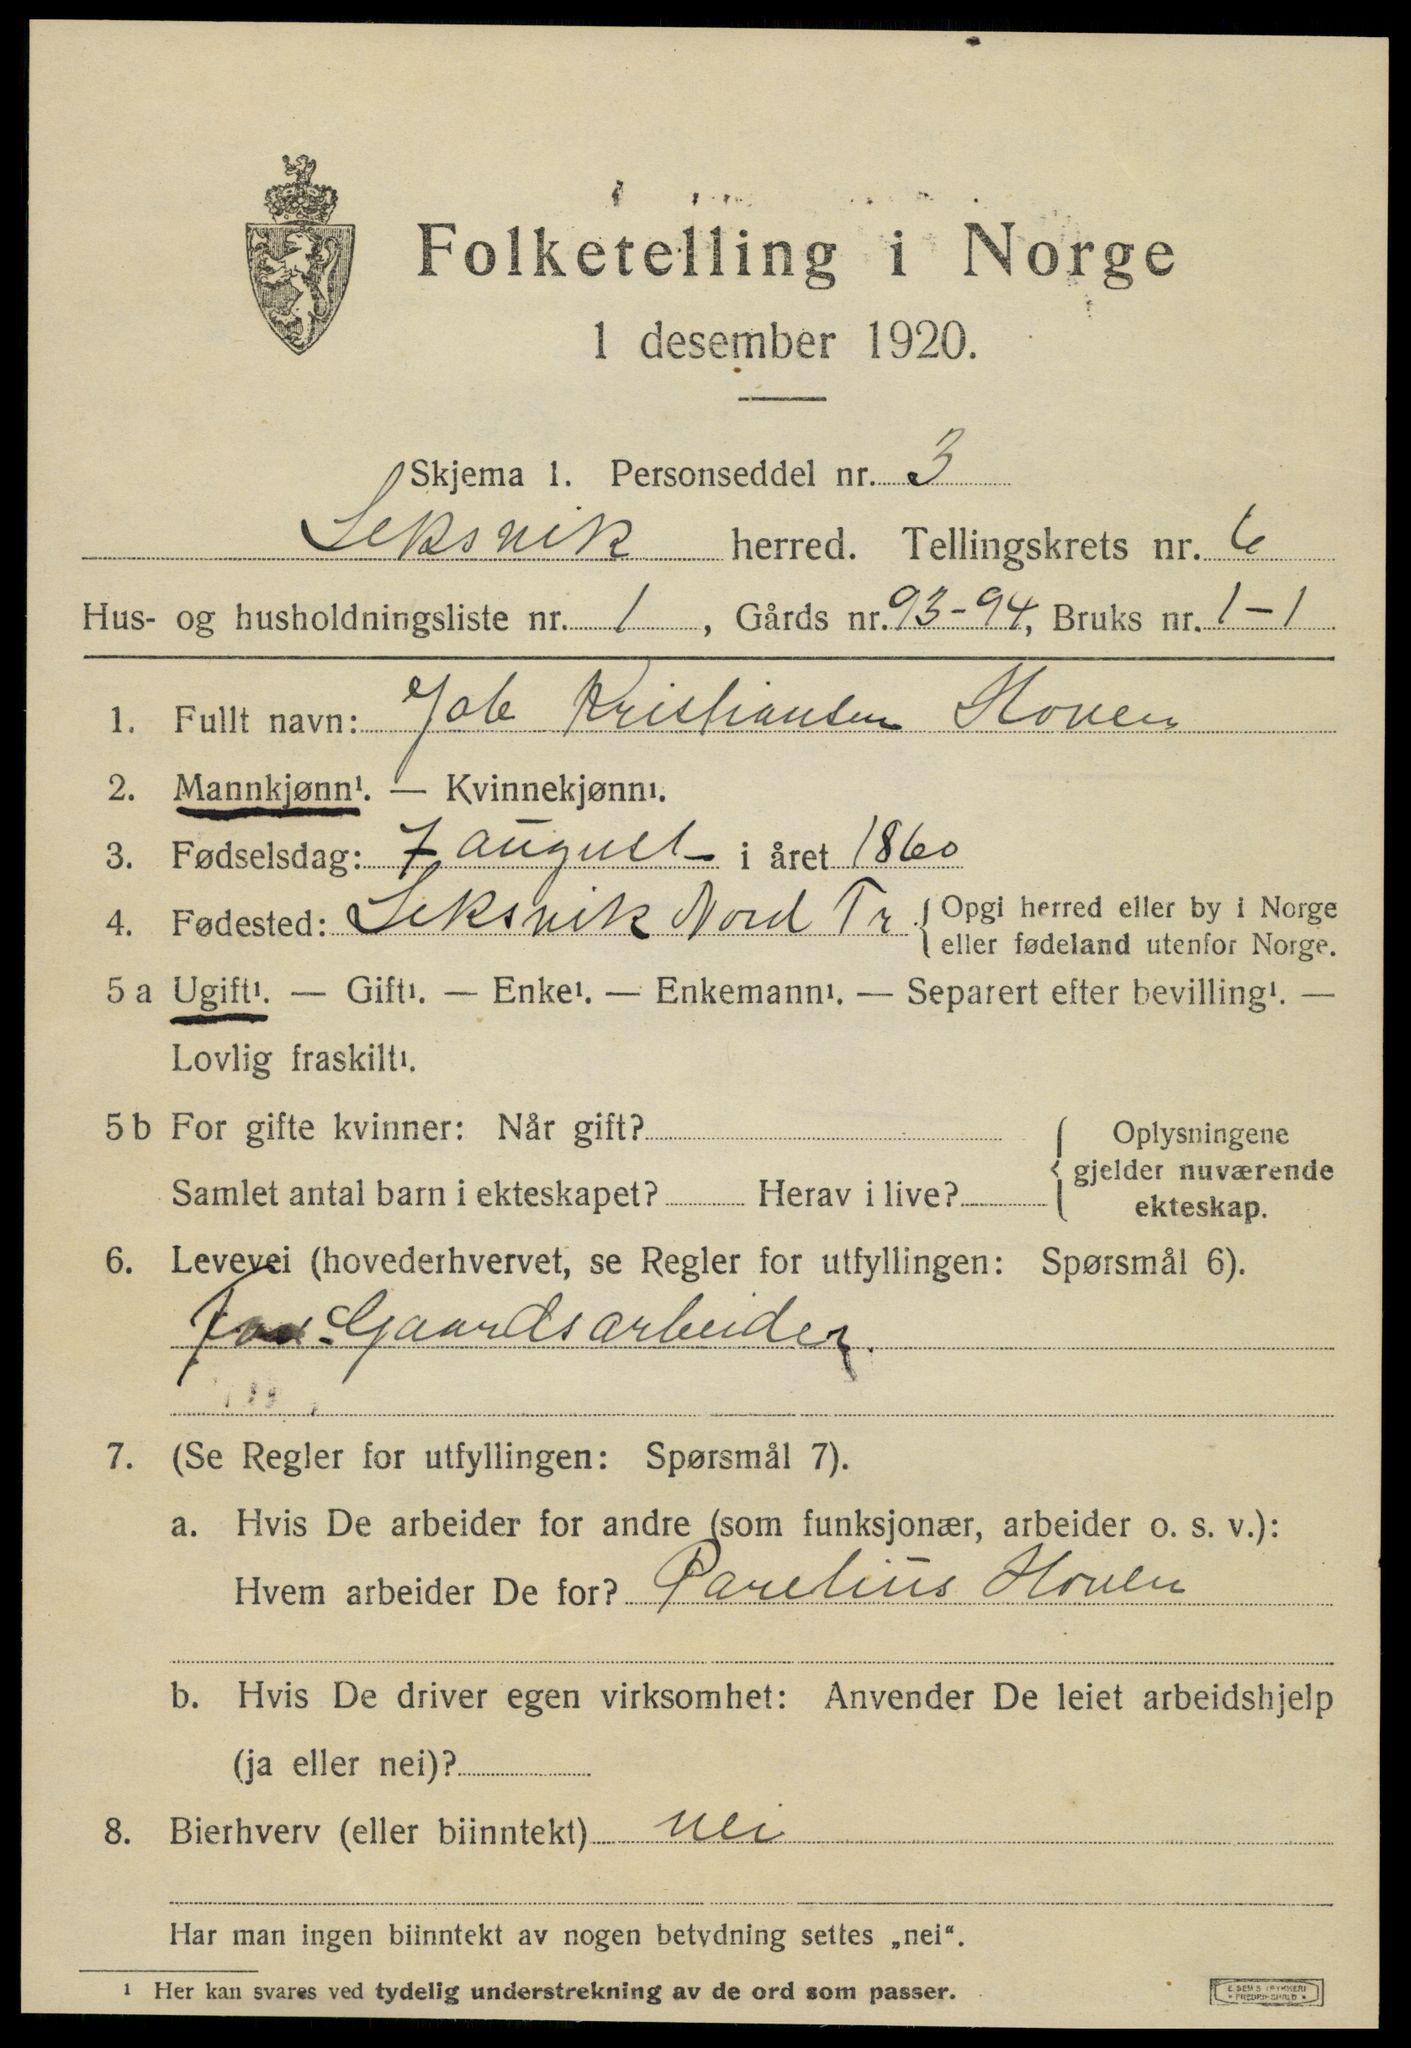 Folketelling i Norge
1 desember 1920.
Skjema 1. Personseddel nr. 3
Leksvik herred. Tellingskrets nr. 6
Hus- og husholdningsliste nr. 1, Gårds nr. 93-94, Bruks nr. 1-1
1. Fullt navn: Job Kristiansen Hoven
2. Mannkjønn¹. — Kvinnekjønn¹.
3. Fødselsdag: 7 august i året 1860
4. Fødested: Leksvik Nord Tr. { Opgi herred eller by i Norge
eller fødeland utenfor Norge.
5 a Ugift¹. — Gift¹. — Enke¹. — Enkemann¹. — Separert efter bevilling¹. —
Lovlig fraskilt¹.
5 b For gifte kvinner: Når gift?
Samlet antal barn i ekteskapet? Herav i live?
{ Oplysningene
gjelder nuværende
ekteskap.
6. Levevei (hovederhvervet, se Regler for utfyllingen: Spørsmål 6).
Gaardsarbeider.
7. (Se Regler for utfyllingen: Spørsmål 7).
a. Hvis De arbeider for andre (som funksjonær, arbeider o. s. v.):
Hvem arbeider De for? Parelius Hoven
b. Hvis De driver egen virksomhet: Anvender De leiet arbeidshjelp
(ja eller nei)?
8. Bierhverv (eller biinntekt) nei
Har man ingen biinntekt av nogen betydning settes „nei“.
¹ Her kan svares ved tydelig understrekning av de ord som passer.